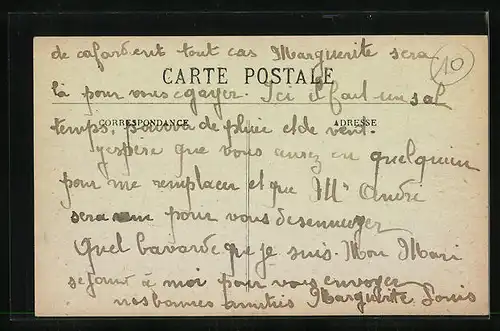 de cafard en tout cas Marguerite sera
10
CARTE POSTALE
là pour vous egayer. Ici il fait un sal
CORRESPONDANCE
ADRESSE
temps, de pluie et de vent.
J'espère que vous aurez eu quelquun
pour me remplacer et que Mr André
sera pour vous desennuyer
Quel bavarde que je suis. Mon Mari
se joint à moi pour vous envoyer
nos bonnes amities Marguerite Louis